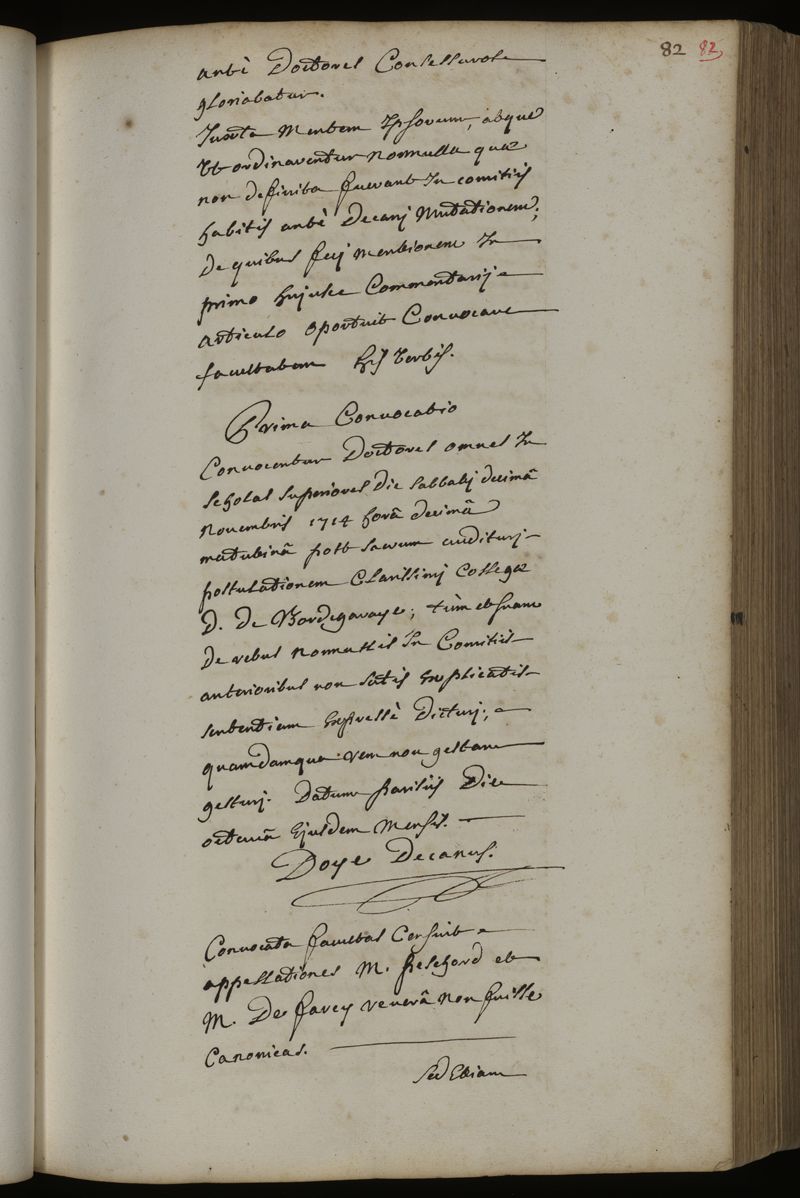 82 82
antè Doctores Consessurole
gloriabatur.
Iuxta Mentem Ipsorum, atque
Ut ordinarentur nonnulla quæ
non definita fuerant In comitiis
habitis antè Decanj Mutationem;
De quibus fecj mentionem In
primo hujusce Commentarij
articulo oportuit Convocare
facultatem his verbis.
Prima Convocatio
Convocentur Doctores omnes In
scholas superiores Die sabbatj decimâ
Novembris 1714 horâ decimâ
matutinâ post sacrum audituri
postulationem Clarissimj Collegæ
D. De Bordegaraye; tùm et suam
De rebus nonnullis In Comitiis
anterioribus non satis Explicatis
sententiam Expressè Dicturj;
quamdamque rem non gestam
gesturj. Datum Parisiis Die
octavâ Ejusdem Mensis.
Doye Decanus.
Convocata facultas Censuit
appellationes M. Peschard et
M. De farcy reverâ non fuisse
Canonicas.
sed Etiam